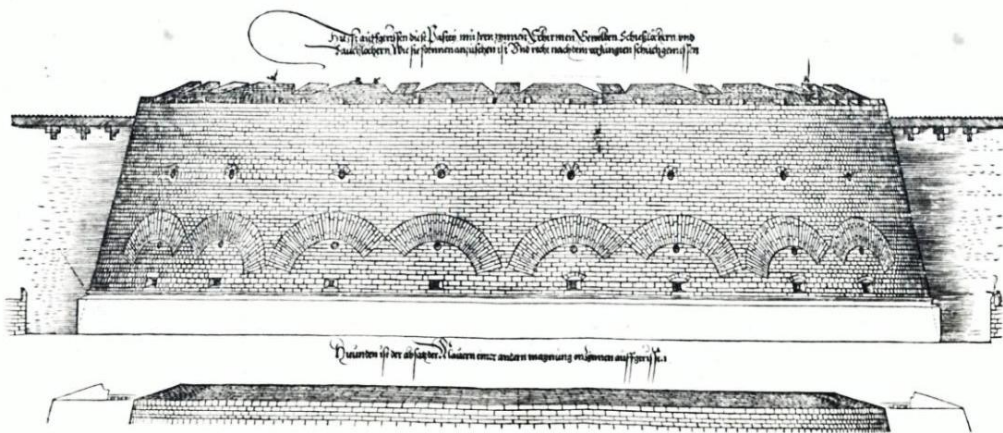 Hie ist auffgerissen diese Pastei mit iren zynnen Schermen Gewelben Schießlöchern und
Rauchlöchern Wie sie fornnen anzusehen ist Vnd nicht nach dem verjungten schuch gemessen
Hie unden ist der absatz der Mauern einer andern maynung on zynnen auffgerissen